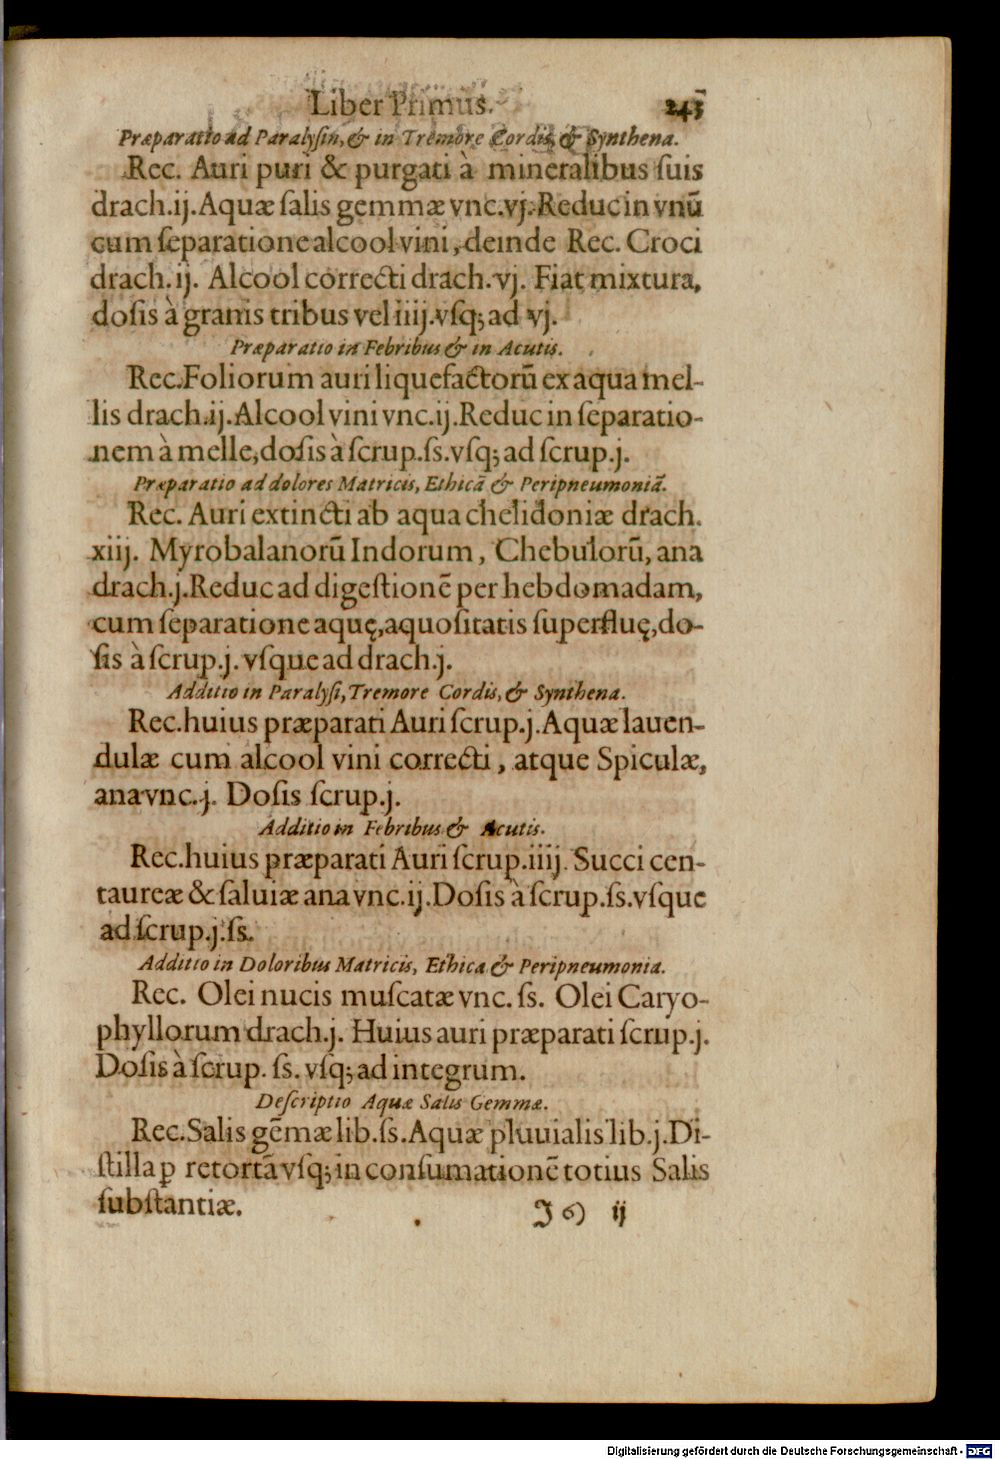 Liber Primus. 243
Præparatio ad Paralyſin, & in Tremore Cordis, & Synthena.
Rec. Auri puri & purgati à mineralibus ſuis
drach.ij. Aquæ ſalis gemmæ vnc.vj. Reduc in vnū
cum ſeparatione alcool vini, deinde Rec. Croci
drach. ij. Alcool correcti drach.vj. Fiat mixtura,
doſis à granis tribus vel iiij.vſq; ad vj.
Præparatio in Febribus & in Acutis.
Rec. Foliorum auri liquefactorū ex aqua mel-
lis drach.ij. Alcool vini vnc.ij. Reduc in ſeparatio-
nem à melle, doſis à ſcrup.ſs.vſq; ad ſcrup.j.
Præparatio ad dolores Matricis, Ethicā & Peripneumoniā.
Rec. Auri extincti ab aqua chelidoniæ drach.
xiij. Myrobalanorū Indorum, Chebulorū, ana
drach.j. Reduc ad digeſtionē per hebdomadam,
cum ſeparatione aquę, aquoſitatis ſuperfluę, do-
ſis à ſcrup.j. vſque ad drach.j.
Additio in Paralyſi, Tremore Cordis, & Synthena.
Rec. huius præparati Auri ſcrup.j. Aquæ lauen-
dulæ cum alcool vini correcti, atque Spiculæ,
ana vnc.j. Doſis ſcrup.j.
Additio in Febribus & Acutis.
Rec. huius præparati Auri ſcrup.iiij. Succi cen-
taureæ & ſaluiæ ana vnc.ij. Doſis à ſcrup.ſs.vſque
ad ſcrup.j.ſs.
Additio in Doloribus Matricis, Ethica & Peripneumonia.
Rec. Olei nucis muſcatæ vnc. ſs. Olei Caryo-
phyllorum drach.j. Huius auri præparati ſcrup.j.
Doſis à ſcrup. ſs. vſq; ad integrum.
Deſcriptio Aquæ Salis Gemmæ.
Rec. Salis gēmæ lib.ſs. Aquæ pluuialis lib.j. Di-
ſtilla ꝑ retortā vſq; in conſumationē totius Salis
ſubſtantiæ.
ij
Digitalisierung gefördert durch die Deutsche Forschungsgemeinschaft - DFG